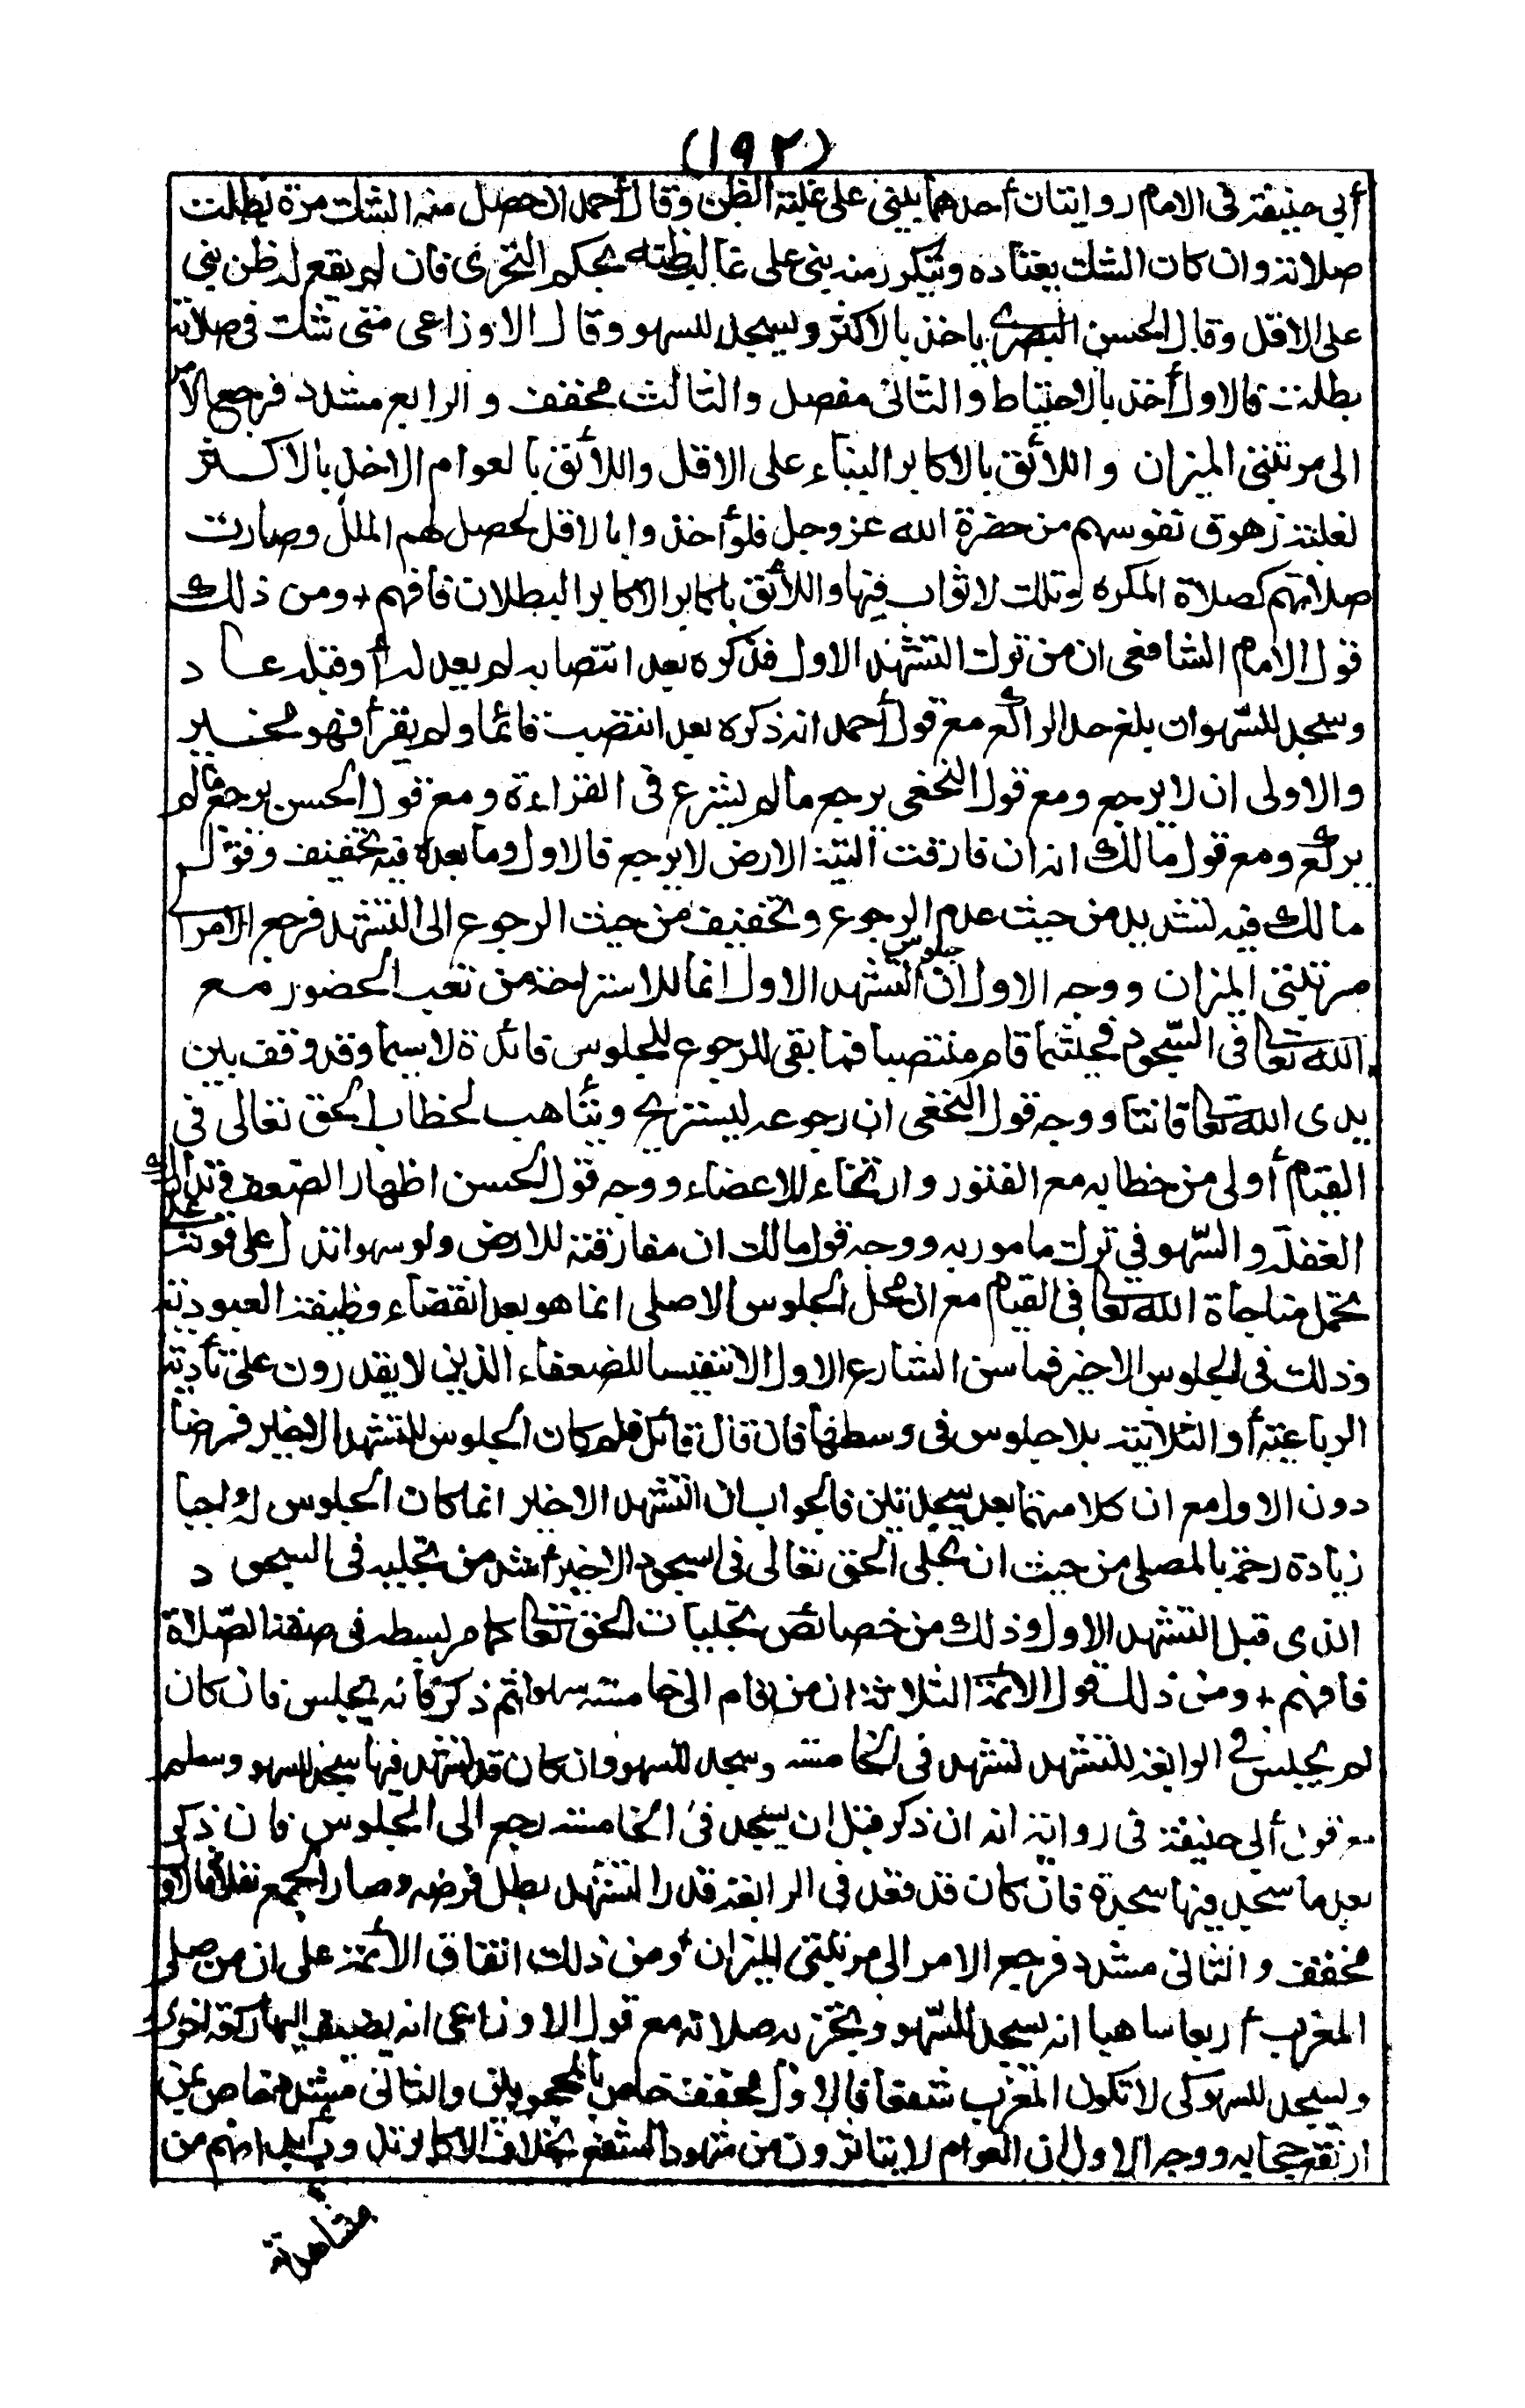 (١٩٢)
أبى حنيفة فى الامام روايتان أحدهما يبنى على غلبة الظن وقال أحمد ان حصل منه الشك مرة بطلت
صلاته وان كان الشك يعتاده ويتكرر منه بنى على غالب ظنه بحكم التحرى فان لم يقع له ظن بنى
على الاقل وقال الحسن البصرى ياخذ بالاكثر ويسجد للسهو وقال الاوزاعى متى شك فى صلاته
بطلت فالاول أخذ بالاحتياط والثانى مفصل والثالث مخفف والرابع مشدد فرجع الامر
الى مرتبتى الميزان واللائق بالاكابر البناء على الاقل واللائق بالعوام الاخذ بالاكثر
لغلبة زهوق نفوسهم من حضرة الله عز وجل فلو أخذوا بالاقل لحصل لهم الملل وصارت
صلاتهم كصلاة المكره وتلك لا ثواب فيها واللائق باكابر الاكابر البطلان فافهم + ومن ذلك
قول الامام الشافعى ان من ترك التشهد الاول فذكره بعد انتصابه لم يعد له أو قبله عاد
وسجد للسهو ان بلغ حد الراكع مع قول أحمد انه ذكره بعد انتصب قائما ولم يقرأ فهو مخير
والاولى ان لا يرجع ومع قول النخعى يرجع ما لم يشرع فى القراءة ومع قول الحسن يرجع ما لم
يركع ومع قول مالك انه ان فارقت اليته الارض لا يرجع فالاول وما بعده فيه تخفيف وقول
مالك فيه تشديد من حيث عدم الرجوع وتخفيف من حيث الرجوع الى التشهد فرجع الامر الى
مرتبتى الميزان ووجه الاول ان جلوس التشهد الاول انما للاستراحة من تعب الحضور مع
الله تعالى فى السجود فحيثما قام منتصبا فما بقى للرجوع للجلوس فائدة لا سيما وقد وقف بين
يدى الله تعالى قانتا ووجه قول النخعى ان رجوعه ليستريح ويتأهب لخطاب الحق تعالى فى
القيام أولى من خطابه مع الفتور وارتخاء للاعضاء ووجه قول الحسن اظهار الضعف فى تداركه
الغفلة والسهو فى ترك مامور به ووجه قول مالك ان مفارقته للارض ولو سهوا تدل على قوته على
تحمل مناجاة الله تعالى فى القيام مع ان محل الجلوس الاصلى انما هو بعد انقضاء وظيفة العبودية
وذلك فى الجلوس الاخير فما سن الشارع الاول الا تنفيسا للضعفاء الذين لا يقدرون على تأدية
الرباعية أو الثلاثية بلا جلوس فى وسطها فان قال قائل فلم كان الجلوس للتشهد الاخير فرضا
دون الاول مع ان كلا منهما بعد سجدتين فالجواب ان التشهد الاخير انما كان الجلوس له واجبا
زيادة رحمة بالمصلى من حيث ان تجلى الحق تعالى فى السجود الاخير أشد من تجليه فى السجود
الذى قبل التشهد الاول وذلك من خصائص تجليات الحق تعالى كما مر بسطه فى صفة الصلاة
فافهم + ومن ذلك قول الائمة الثلاثة ان من قام الى خامسة سهوا ثم ذكر فانه يجلس فان كان
لم يجلس فى الرابعة للتشهد تشهد فى الخامسة وسجد للسهو وان كان قد تشهد فيها سجد للسهو وسلم
مع قول أبى حنيفة فى رواية انه ان ذكر قبل ان يسجد فى الخامسة رجع الى الجلوس فان ذكر
بعد ما سجد فيها سجدة فان كان قد قعد فى الرابعة قدر التشهد بطل فرضه وصار الجميع نفلا فالاول
مخفف والثانى مشدد فرجع الامر الى مرتبتى الميزان + ومن ذلك اتفاق الأئمة على ان من صلى
المغرب أربعا ساهيا انه يسجد للسهو وتجزيه صلاته مع قول الاوزاعى انه يضيف اليها ركعة اخرى
ويسجد للسهو كى لا تكون المغرب شفعا فالاول مخفف خاص بالمحجوبين والثانى مشدد خاص بمن
ارتفع حجابه ووجه الاول ان العوام لا يتاثرون من شهود الشفع بخلاف الاكابر وانهم من
مشاهدة